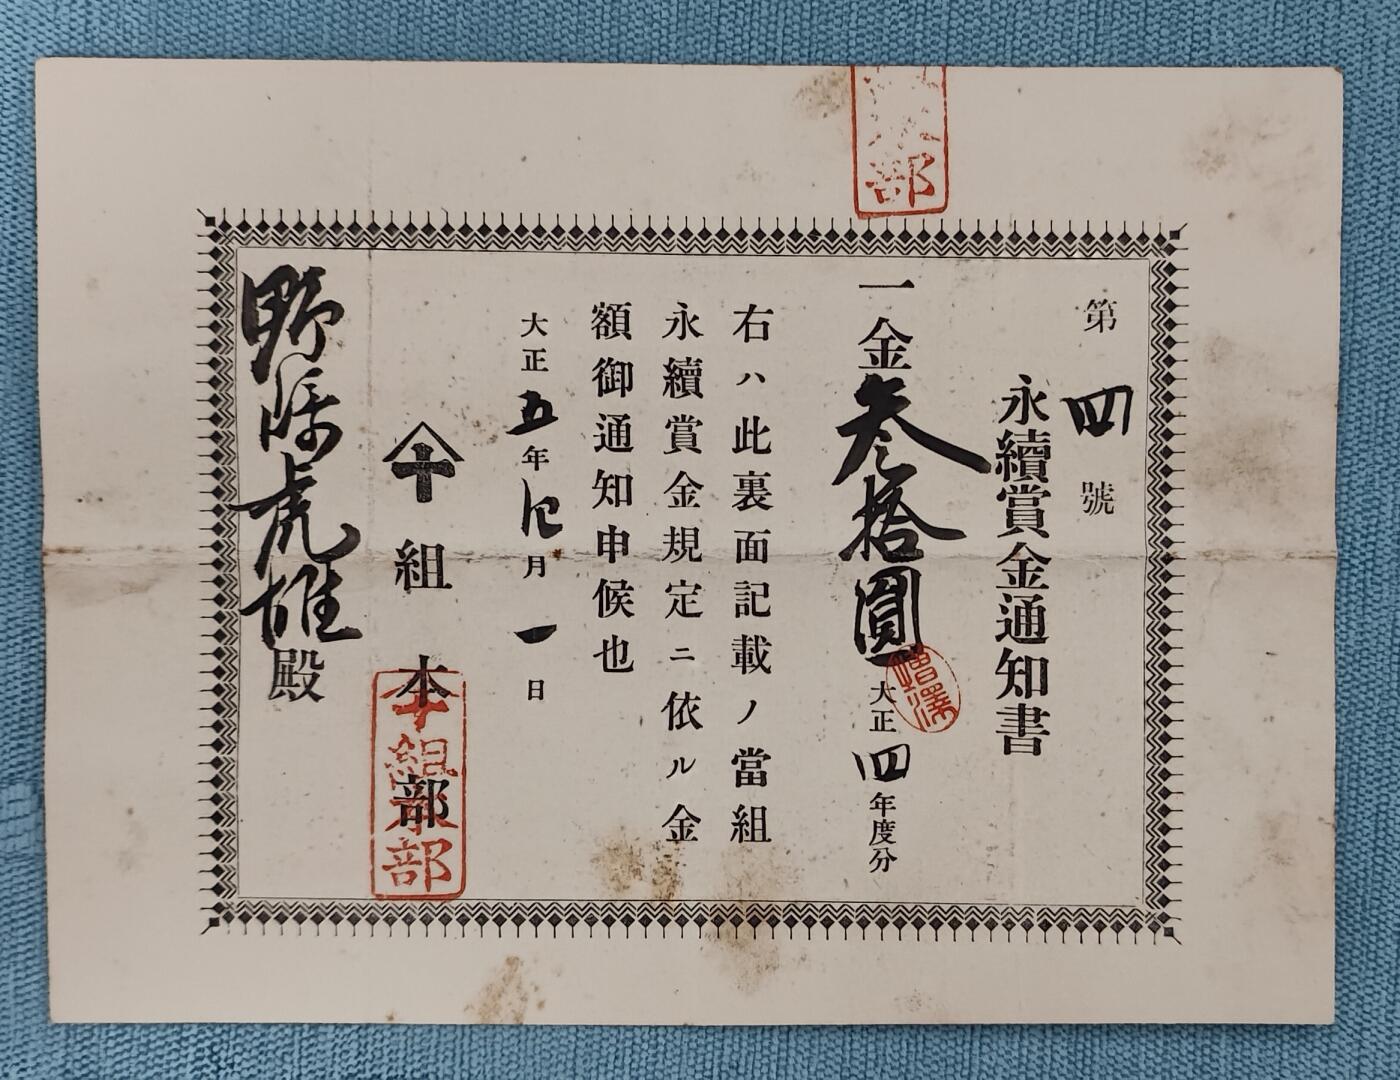 第四號
永續賞金通知書
一金叄拾圓
大正四年度分
右ハ此裏面記載ノ當組
永續賞金規定ニ依ル金
額御通知申候也
大正五年 月一日
組本部
野 虎雄殿
部
增澤
組本部